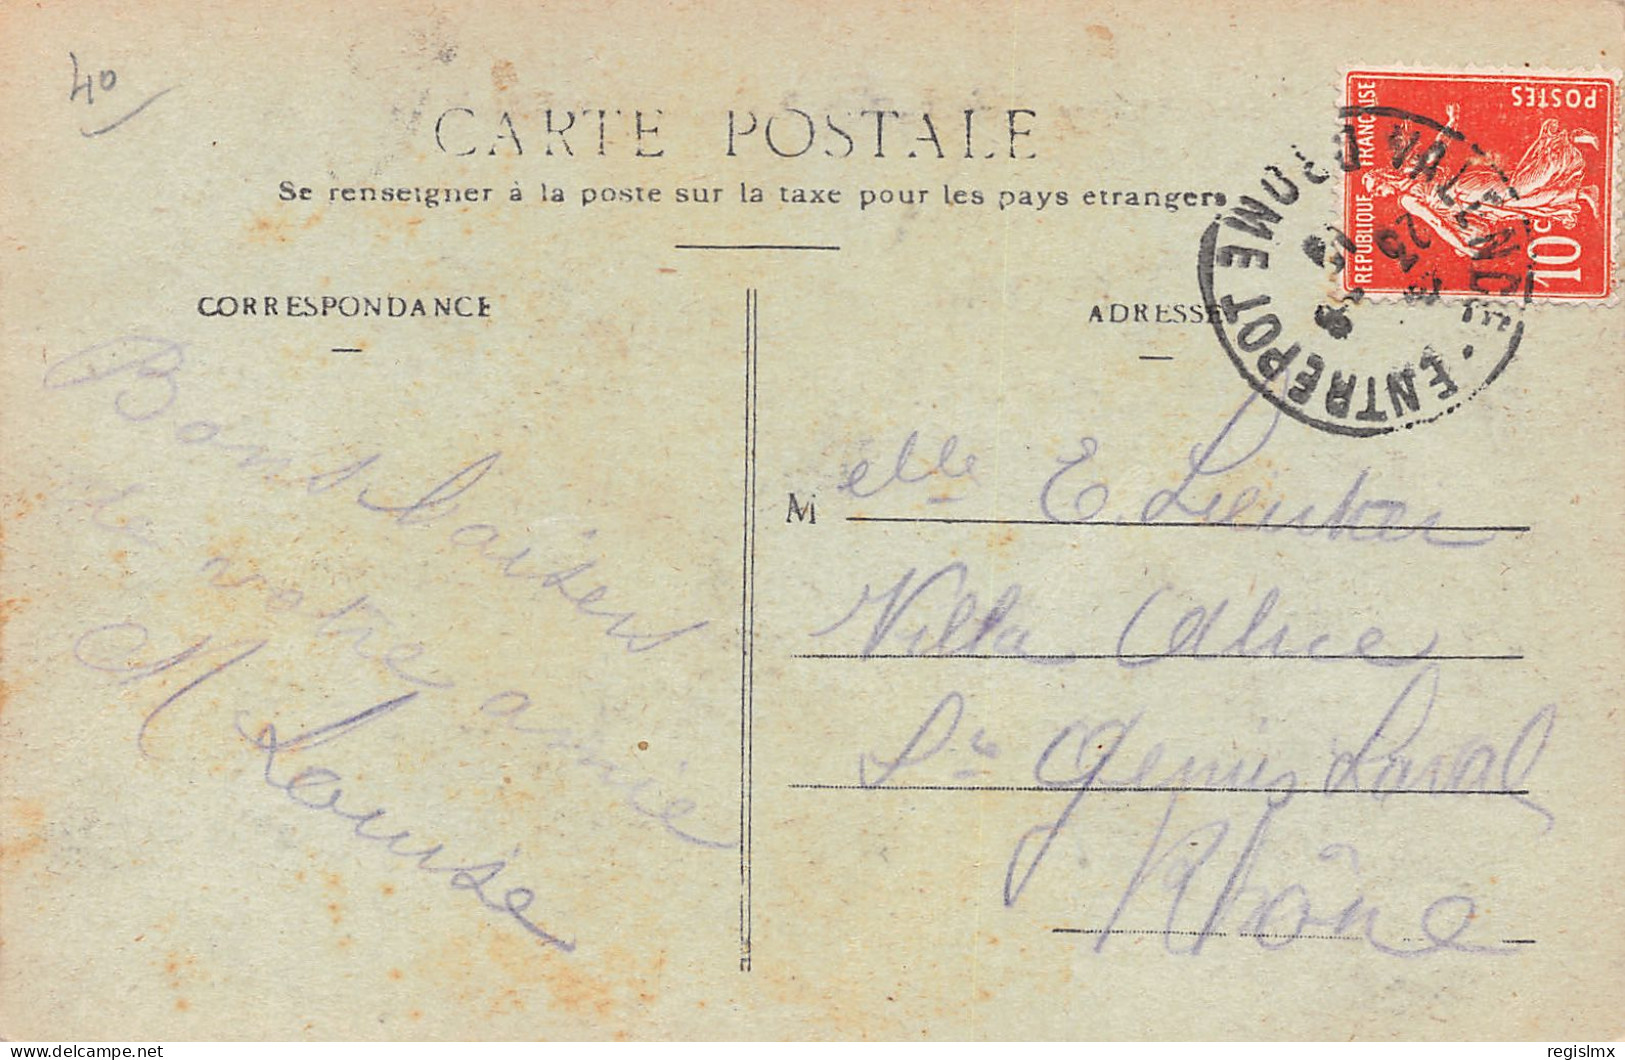 40
CARTE POSTALE
Se renseigner à la poste sur la taxe pour les pays etrangers
CORRESPONDANCE
ADRESSE
REPUBLIQUE FRANÇAISE
POSTES
10c
VALENCE • ENTREPOT DROME
25
Bons baisers
de votre amie
M Louise
Melle E.
Villa Alice
St Genis Laval
Rhône
delcampe.net
regislmx